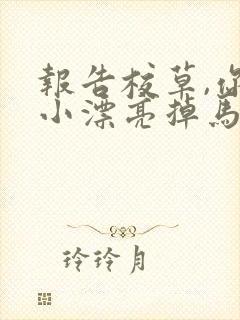 報告校草,你
小漂亮掉馬
玲玲月